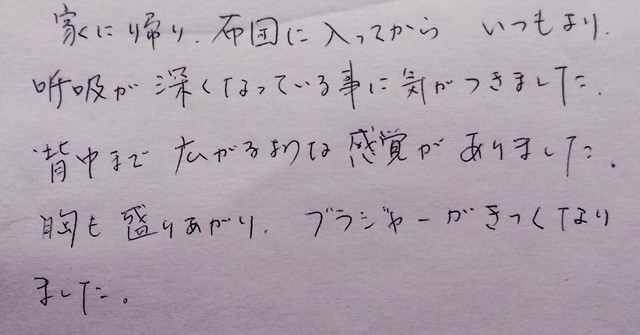 家に帰り、布団に入ってから いつもより、
呼吸が深くなっている事に気がつきました、
背中まで広がるような感覚がありました、
胸も盛りあがり、ブラジャーがきつくなり
ました。